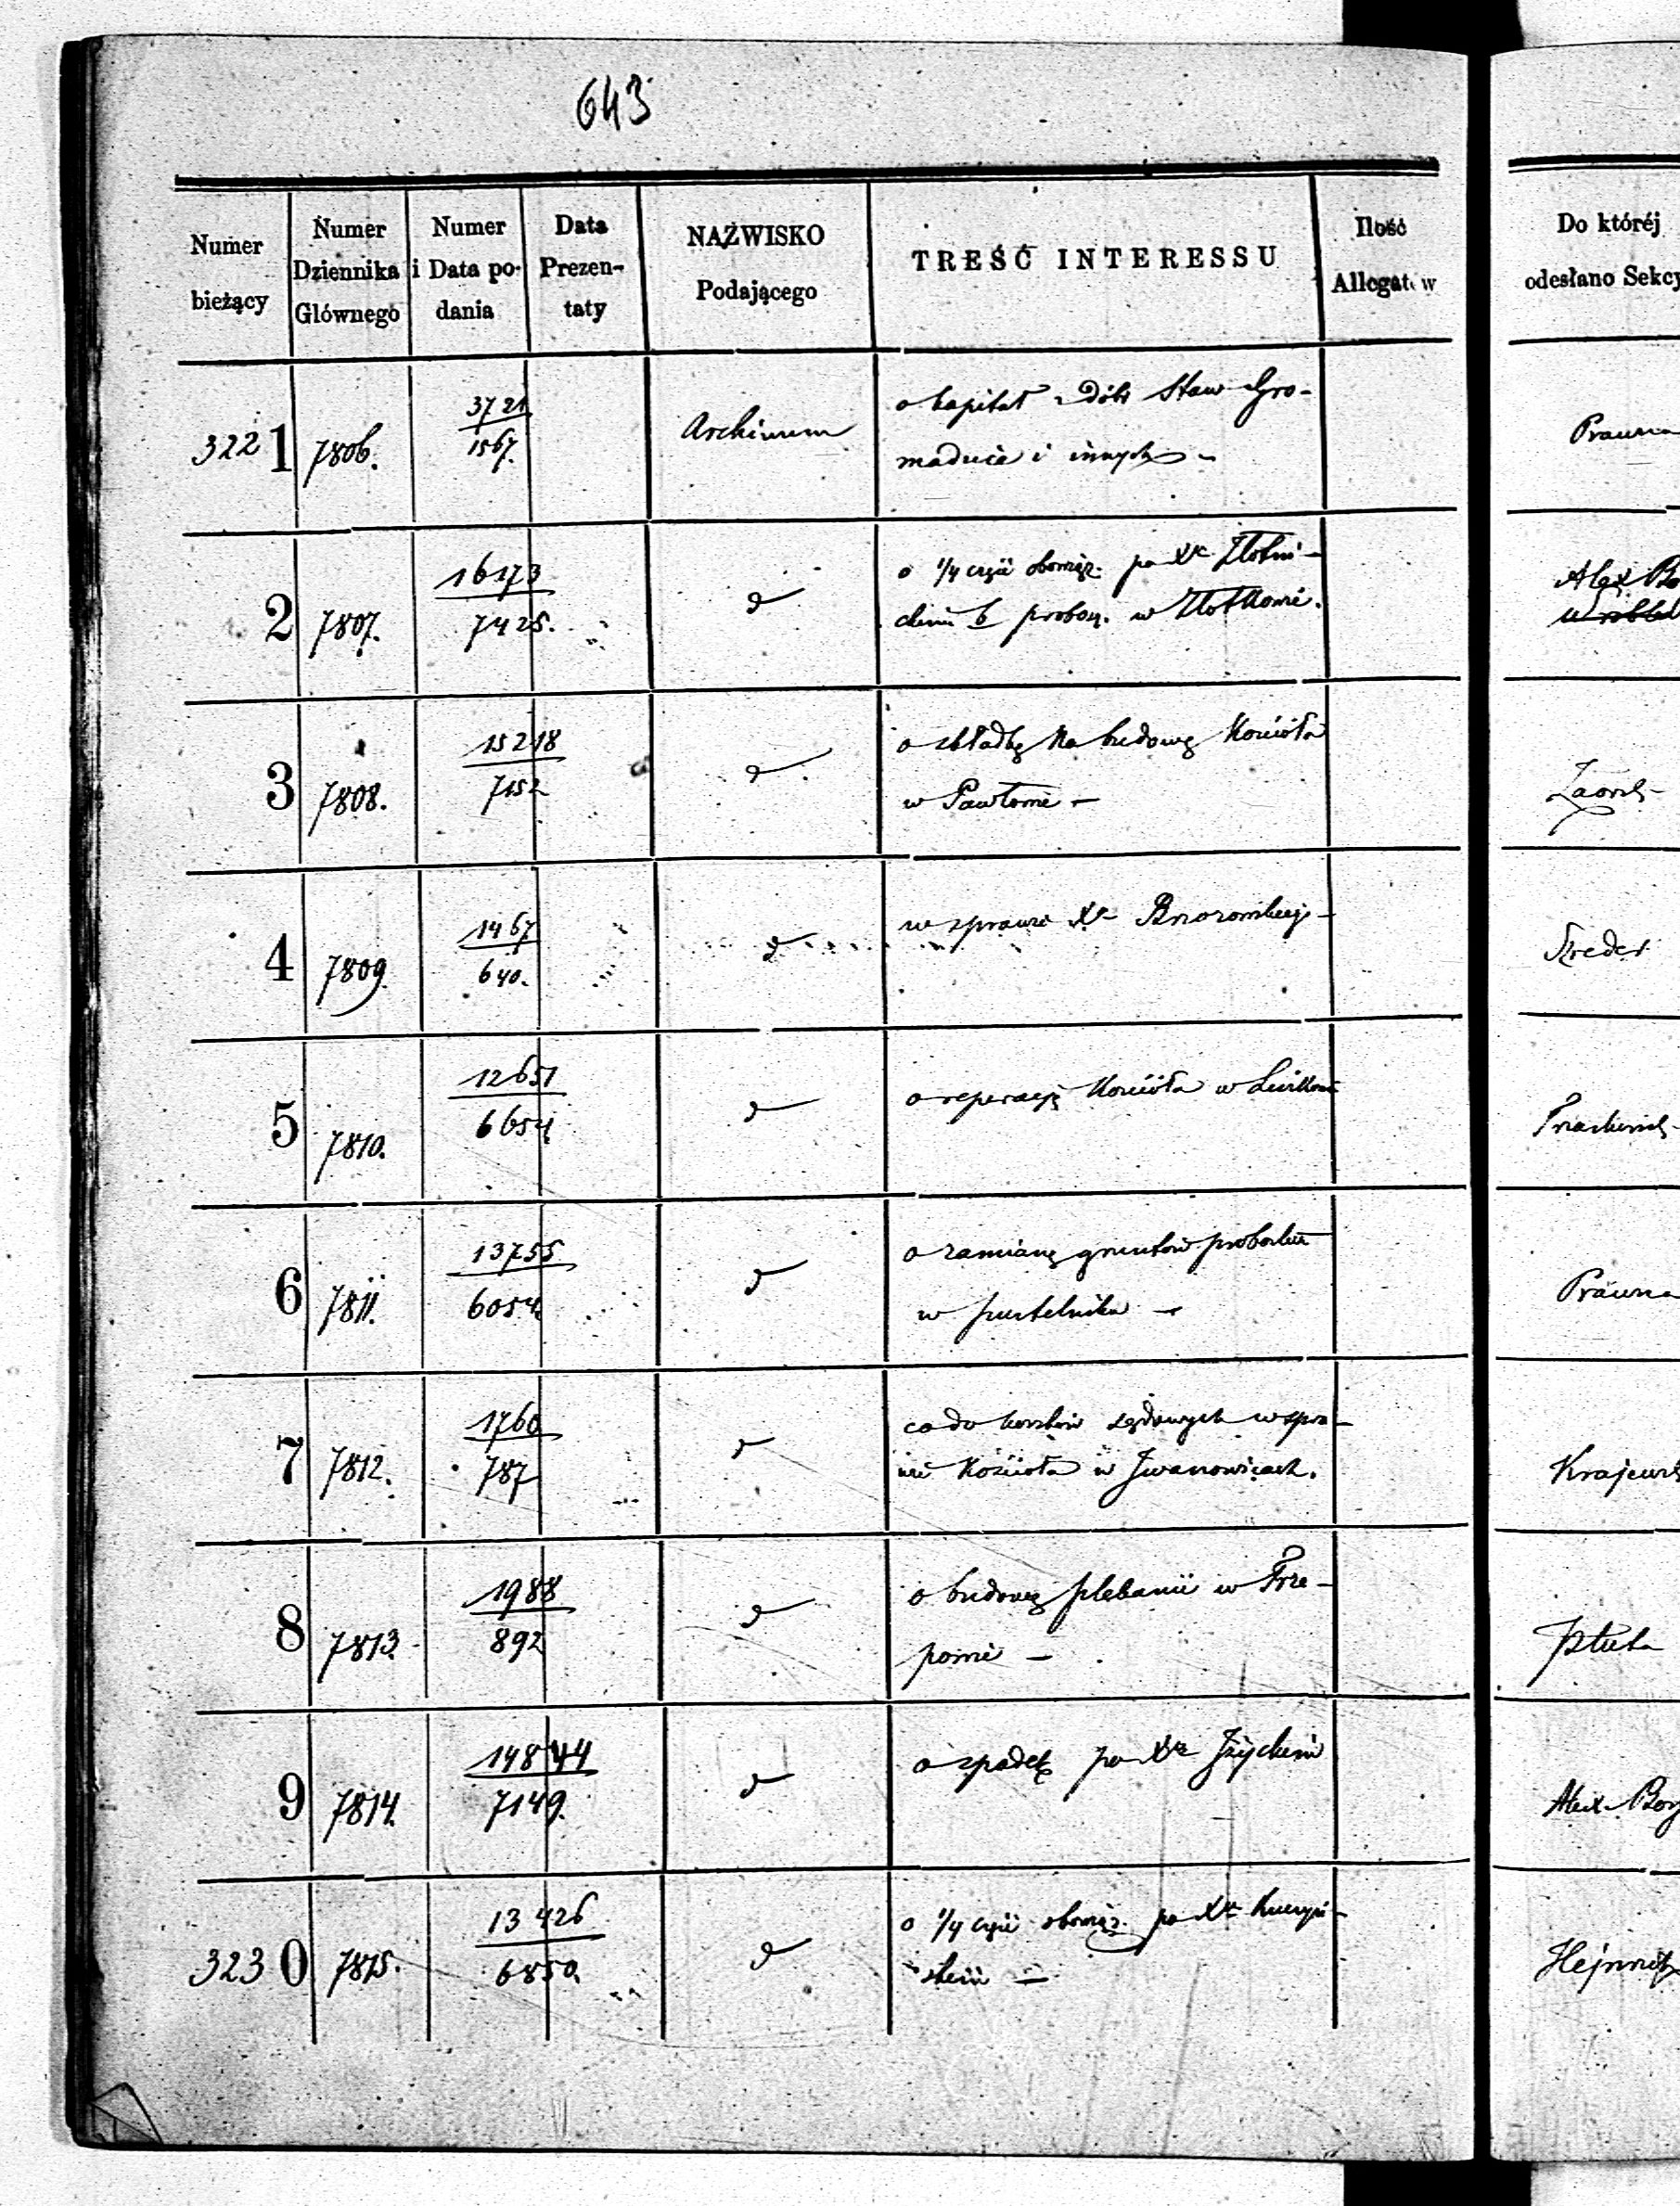 643
Numer bieżący
Numer Dziennika Głównego
Numer i Data podania
Data Prezentaty
NAZWISKO Podającego
TREŚĆ INTERESSU
Ilość Allegatów
Do któréj odesłano Sekcy
3221 7806. 3721 1567. Archiwum o kapitał z dóbr Staw Gro-
maduia i innych - Prawna
2 7807. 16173 7425. d o 1/4 części obowiąz. po Xe
b probosz. w Alex Bo
3 7808. 15218 7152 d o składkę na budowę Kościoła
w Pawłowie -
4 7809. 1467 640. d w sprawie Xa Szreder
5 7810. 12651 6654 d o reperacyę Kościoła w
6 7811. 13755 6054. d o zamianę gruntów probostwa
w pustelniku - Prawna
7 7812. 1760 787 d co do kosztów sądowych w spra-
wie Kościoła w Iwanowicach. Krajews
8 7813. 1988 892 d o budowę plebanii w
Pluta
9 7814. 14844 7149. d o spadek po Xe Alex Bor
3230 7815. 13426 6850. d o 1/4 części obowiąz. po Xe
skim -